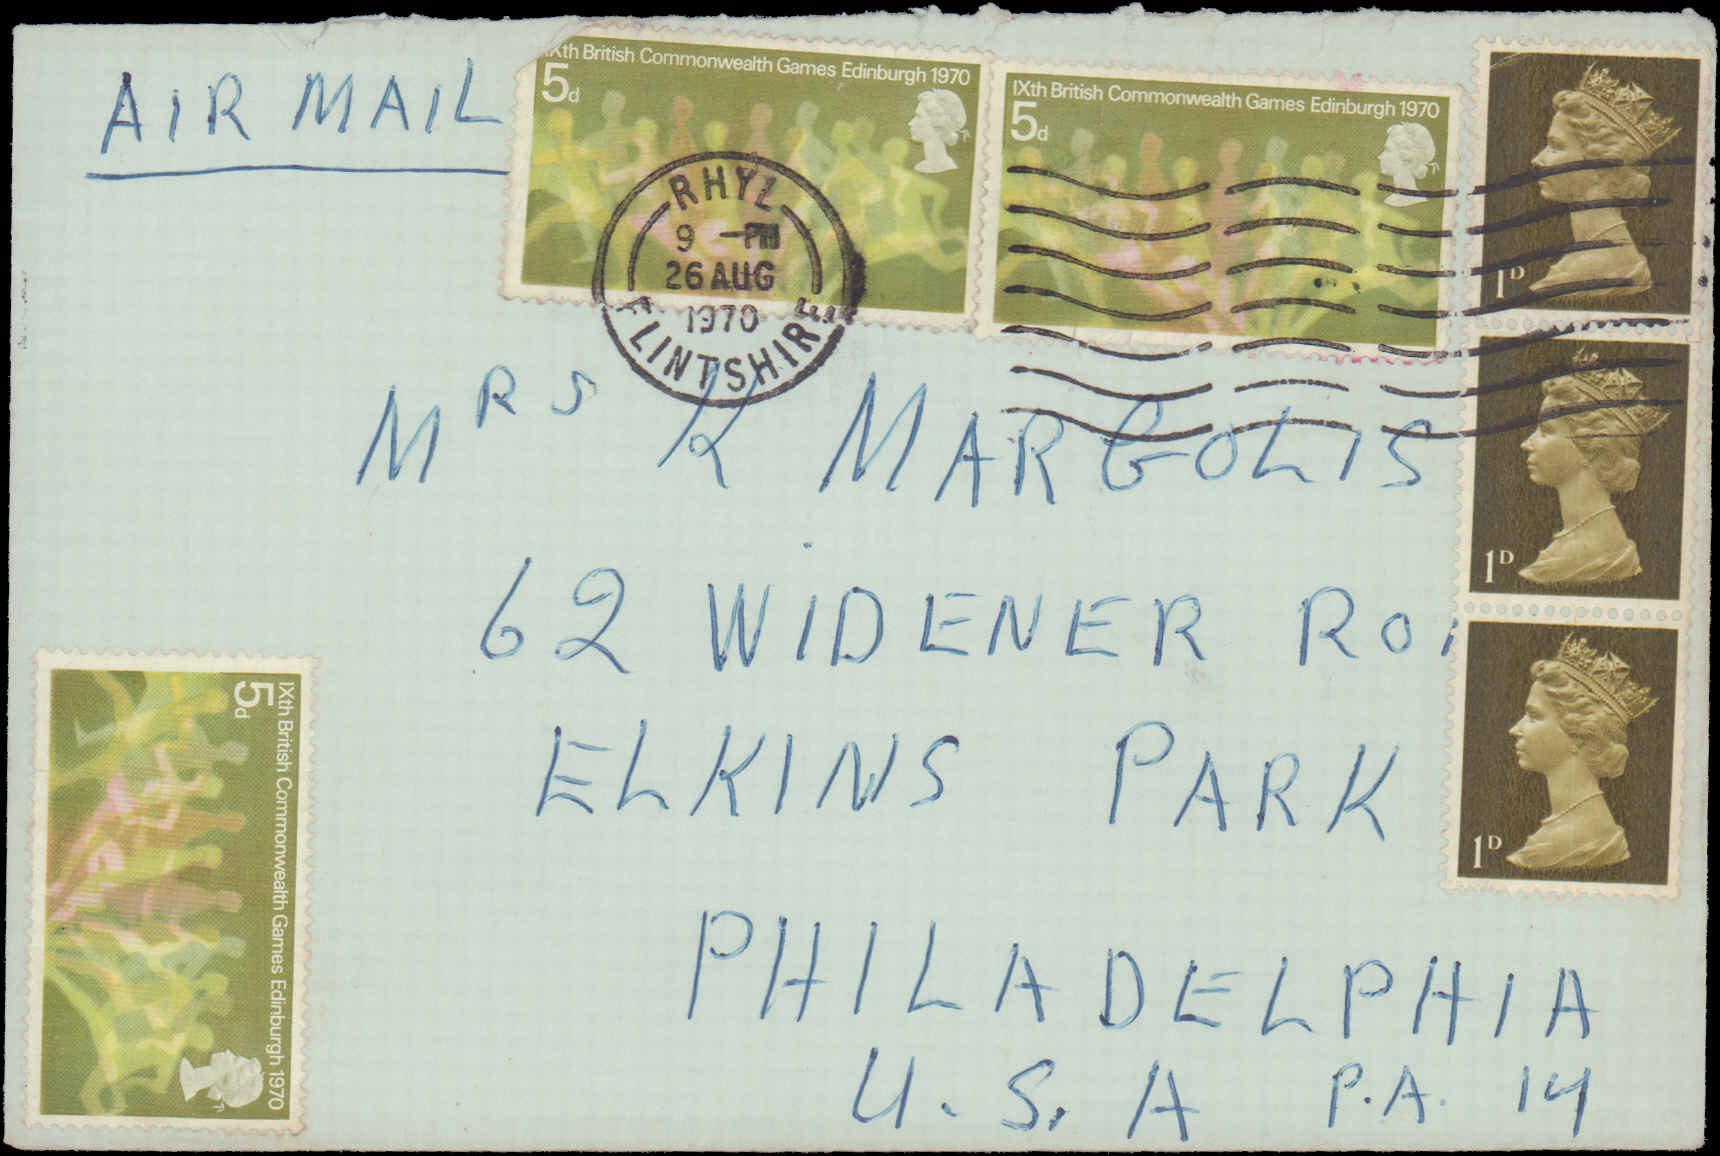 AIR MAIL
IXth British Commonwealth Games Edinburgh 1970
5d
IXth British Commonwealth Games Edinburgh 1970
5d
1D
RHYL
9 -PM
26 AUG
1970
FLINTSHIRE
MRS K MARGOLIS
1D
62 WIDENER
ELKINS PARK
1D
PHILADELPHIA
U.S.A P.A. 14
IXth British Commonwealth Games Edinburgh 1970
5d